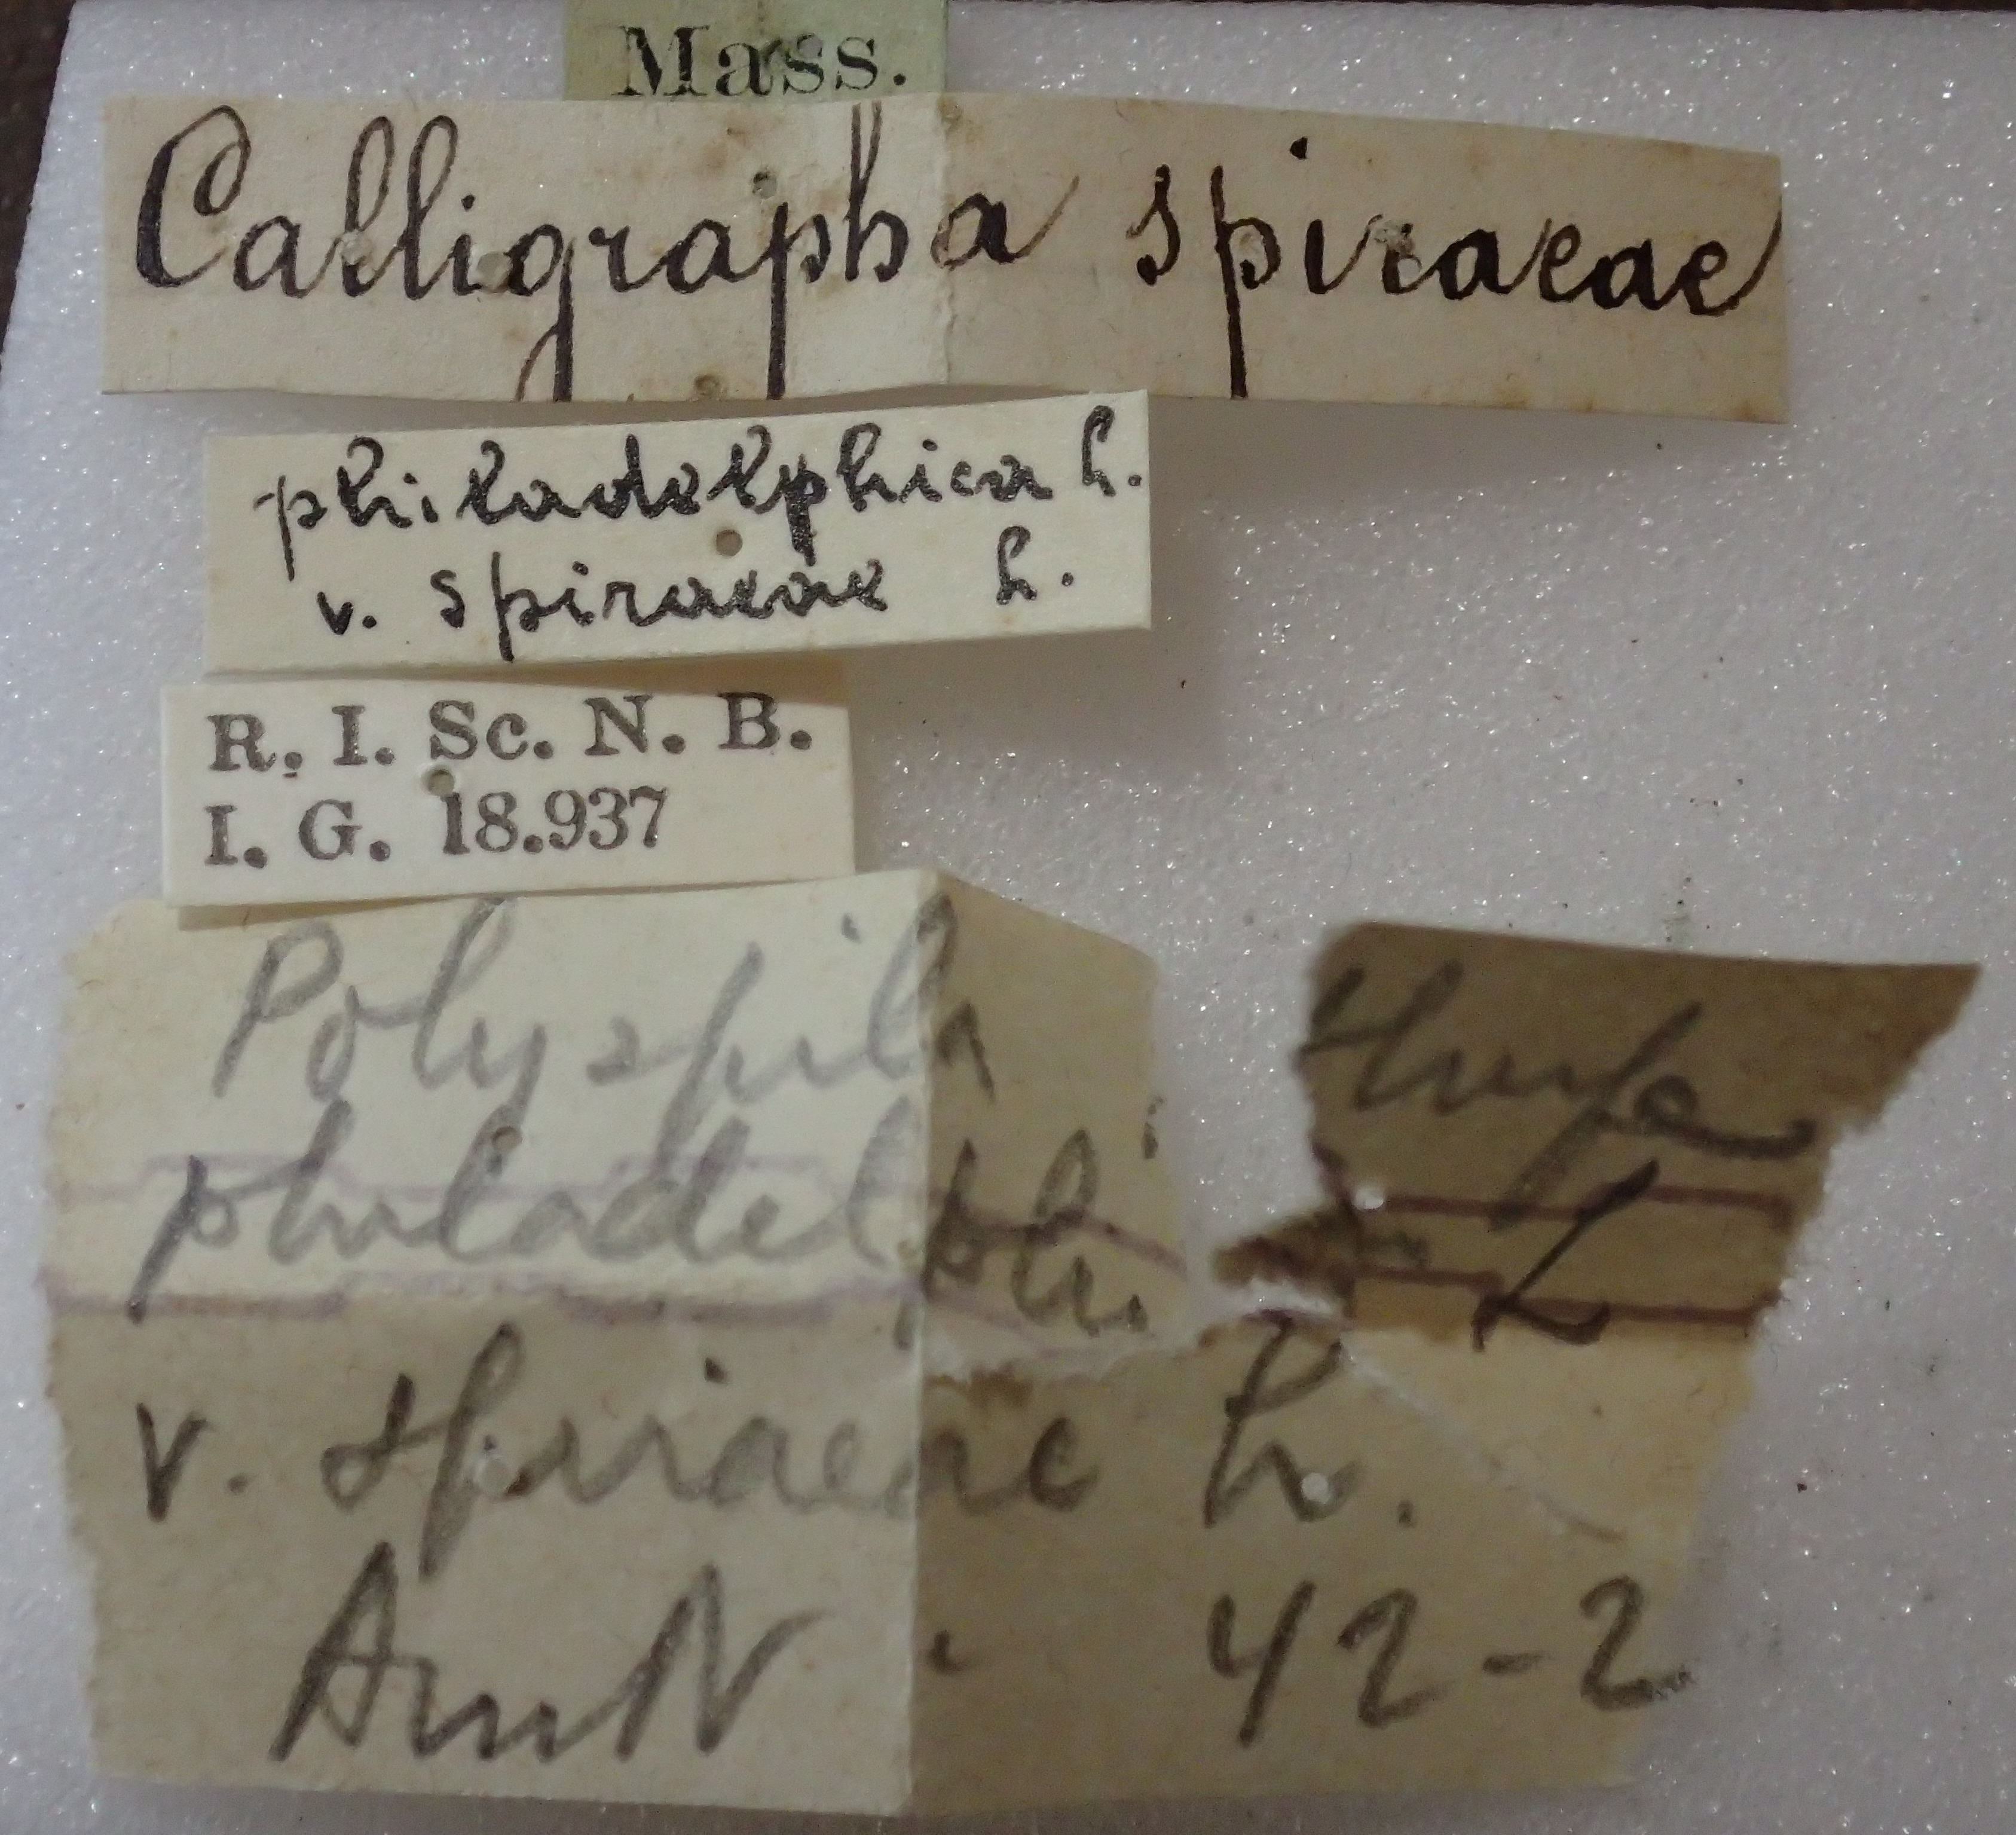 Mass.
Calligrapha spiraeae
philadelphica L.
v. spiraeae L.
R. I. Sc. N. B.
I. G. 18.937
Polyspil
philadelphi L
v. spiraeae L.
Am N. 42-2